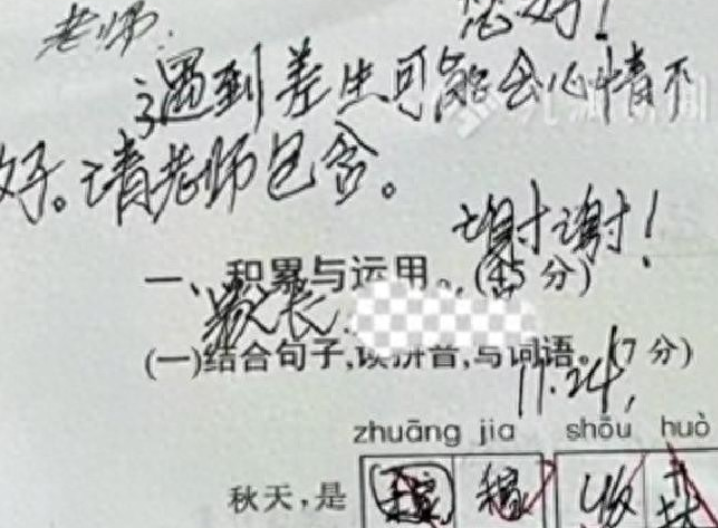 老师: 您好!
遇到差生可能会心情不
好。请老师包含。
谢谢!
一、积累与运用。(45 分)
家长
(一)结合句子,读拼音,写词语。(7 分)
11.24,
zhuāng jia shōu huò
秋天,是 稼 收